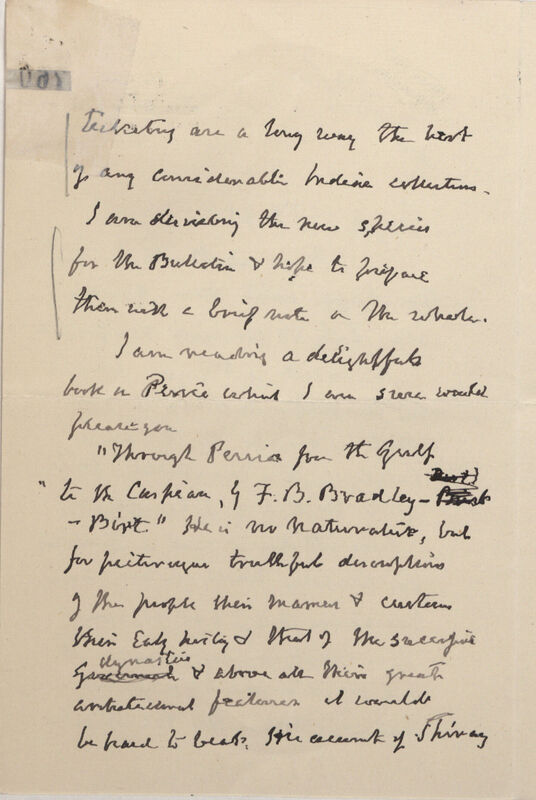 are a long way the best
of any considerable Indian collections.
I am describing the new species
for the Bulletin & hope to prepare
them with a brief note on the whole.
I am reading a delightful
book on Persia which I am sure would
please you
"Through Persia from the Gulf
"to the Caspian, by F. B. Bradley-
-Birt." He is no Naturalist, but
for picturesque truthful descriptions
of the people their manners & customs
their Early history & that of the successive
dynasties & above all their great
architectural features it would
be hard to beat. His account of Shiraz